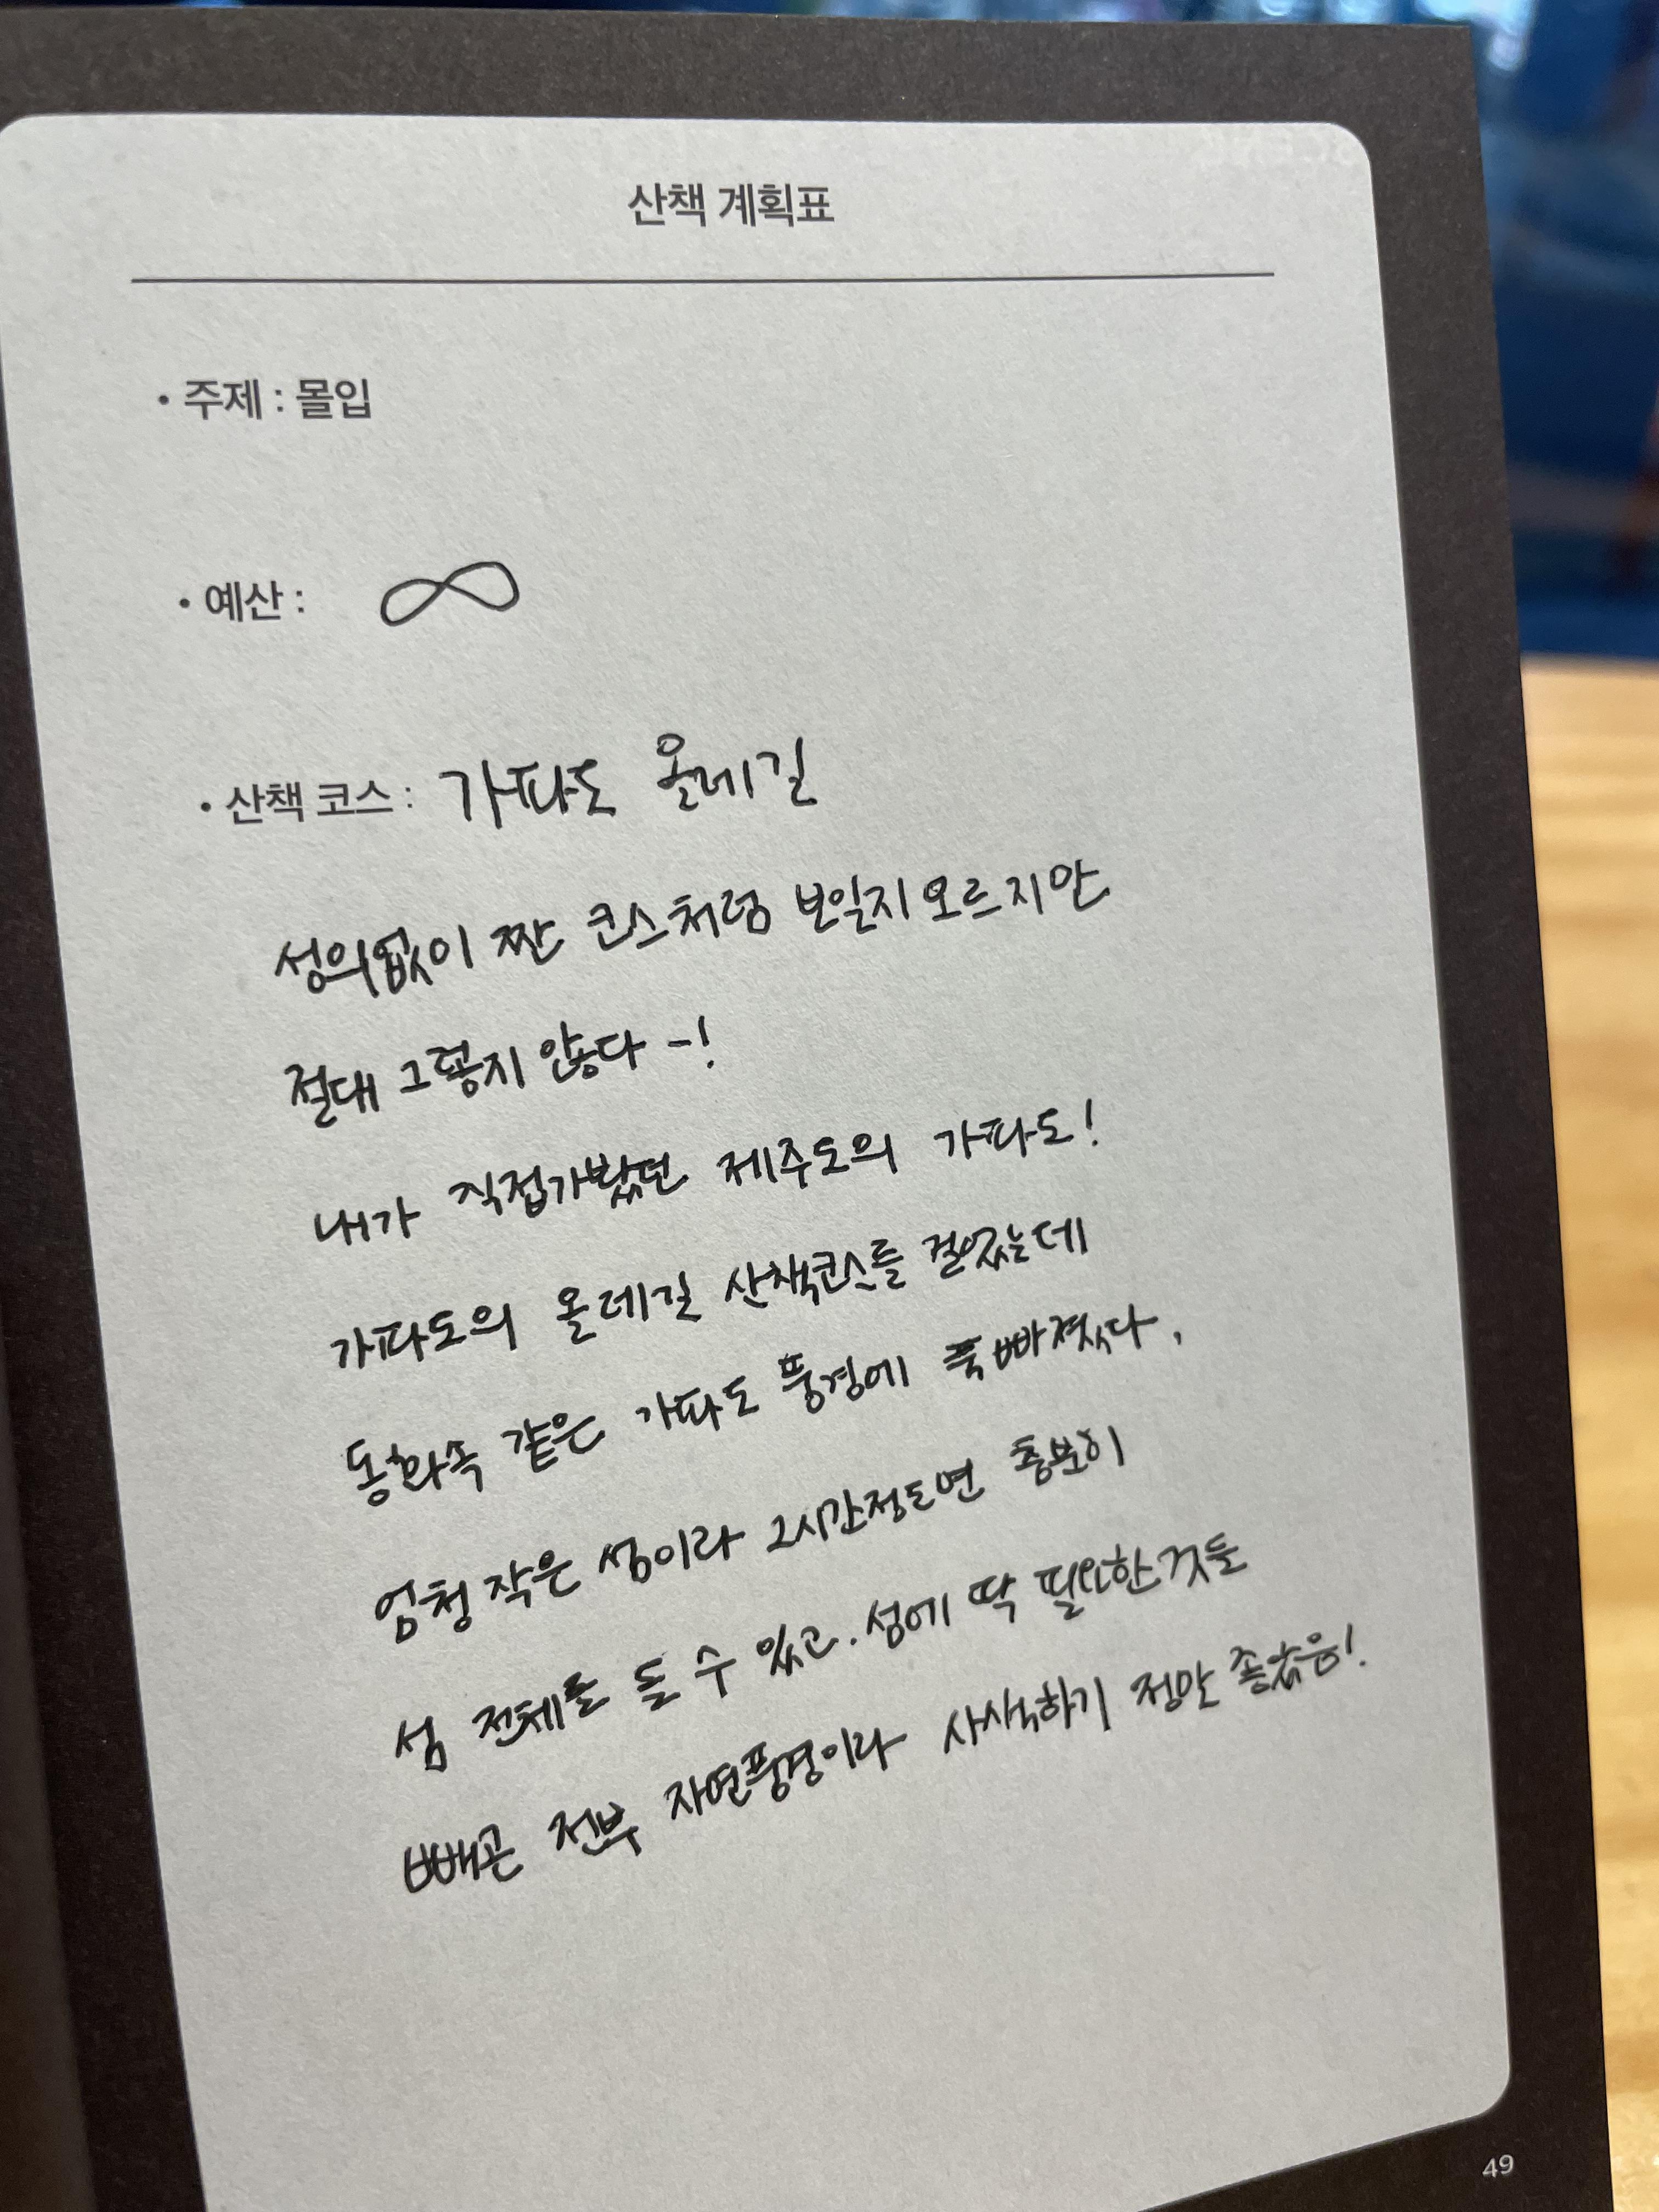 산책 계획표
• 주제 : 몰입
• 예산 : ∞
• 산책 코스 : 가파도 올레길
성의없이 짠 코스처럼 보일지모르지만
절대 그렇지 않다 ~!
내가 직접가봤던 제주도의 가파도!
가파도의 올레길 산책코스를 걸었는데
동화속 같은 가파도 풍경에 푹빠졌다.
엄청 작은 섬이라 2시간정도면 충분히
섬 전체를 돌 수 있고. 섬에 딱 필요한것들
빼곤 전부 자연풍경이라 사색하기 정말 좋았음!
49